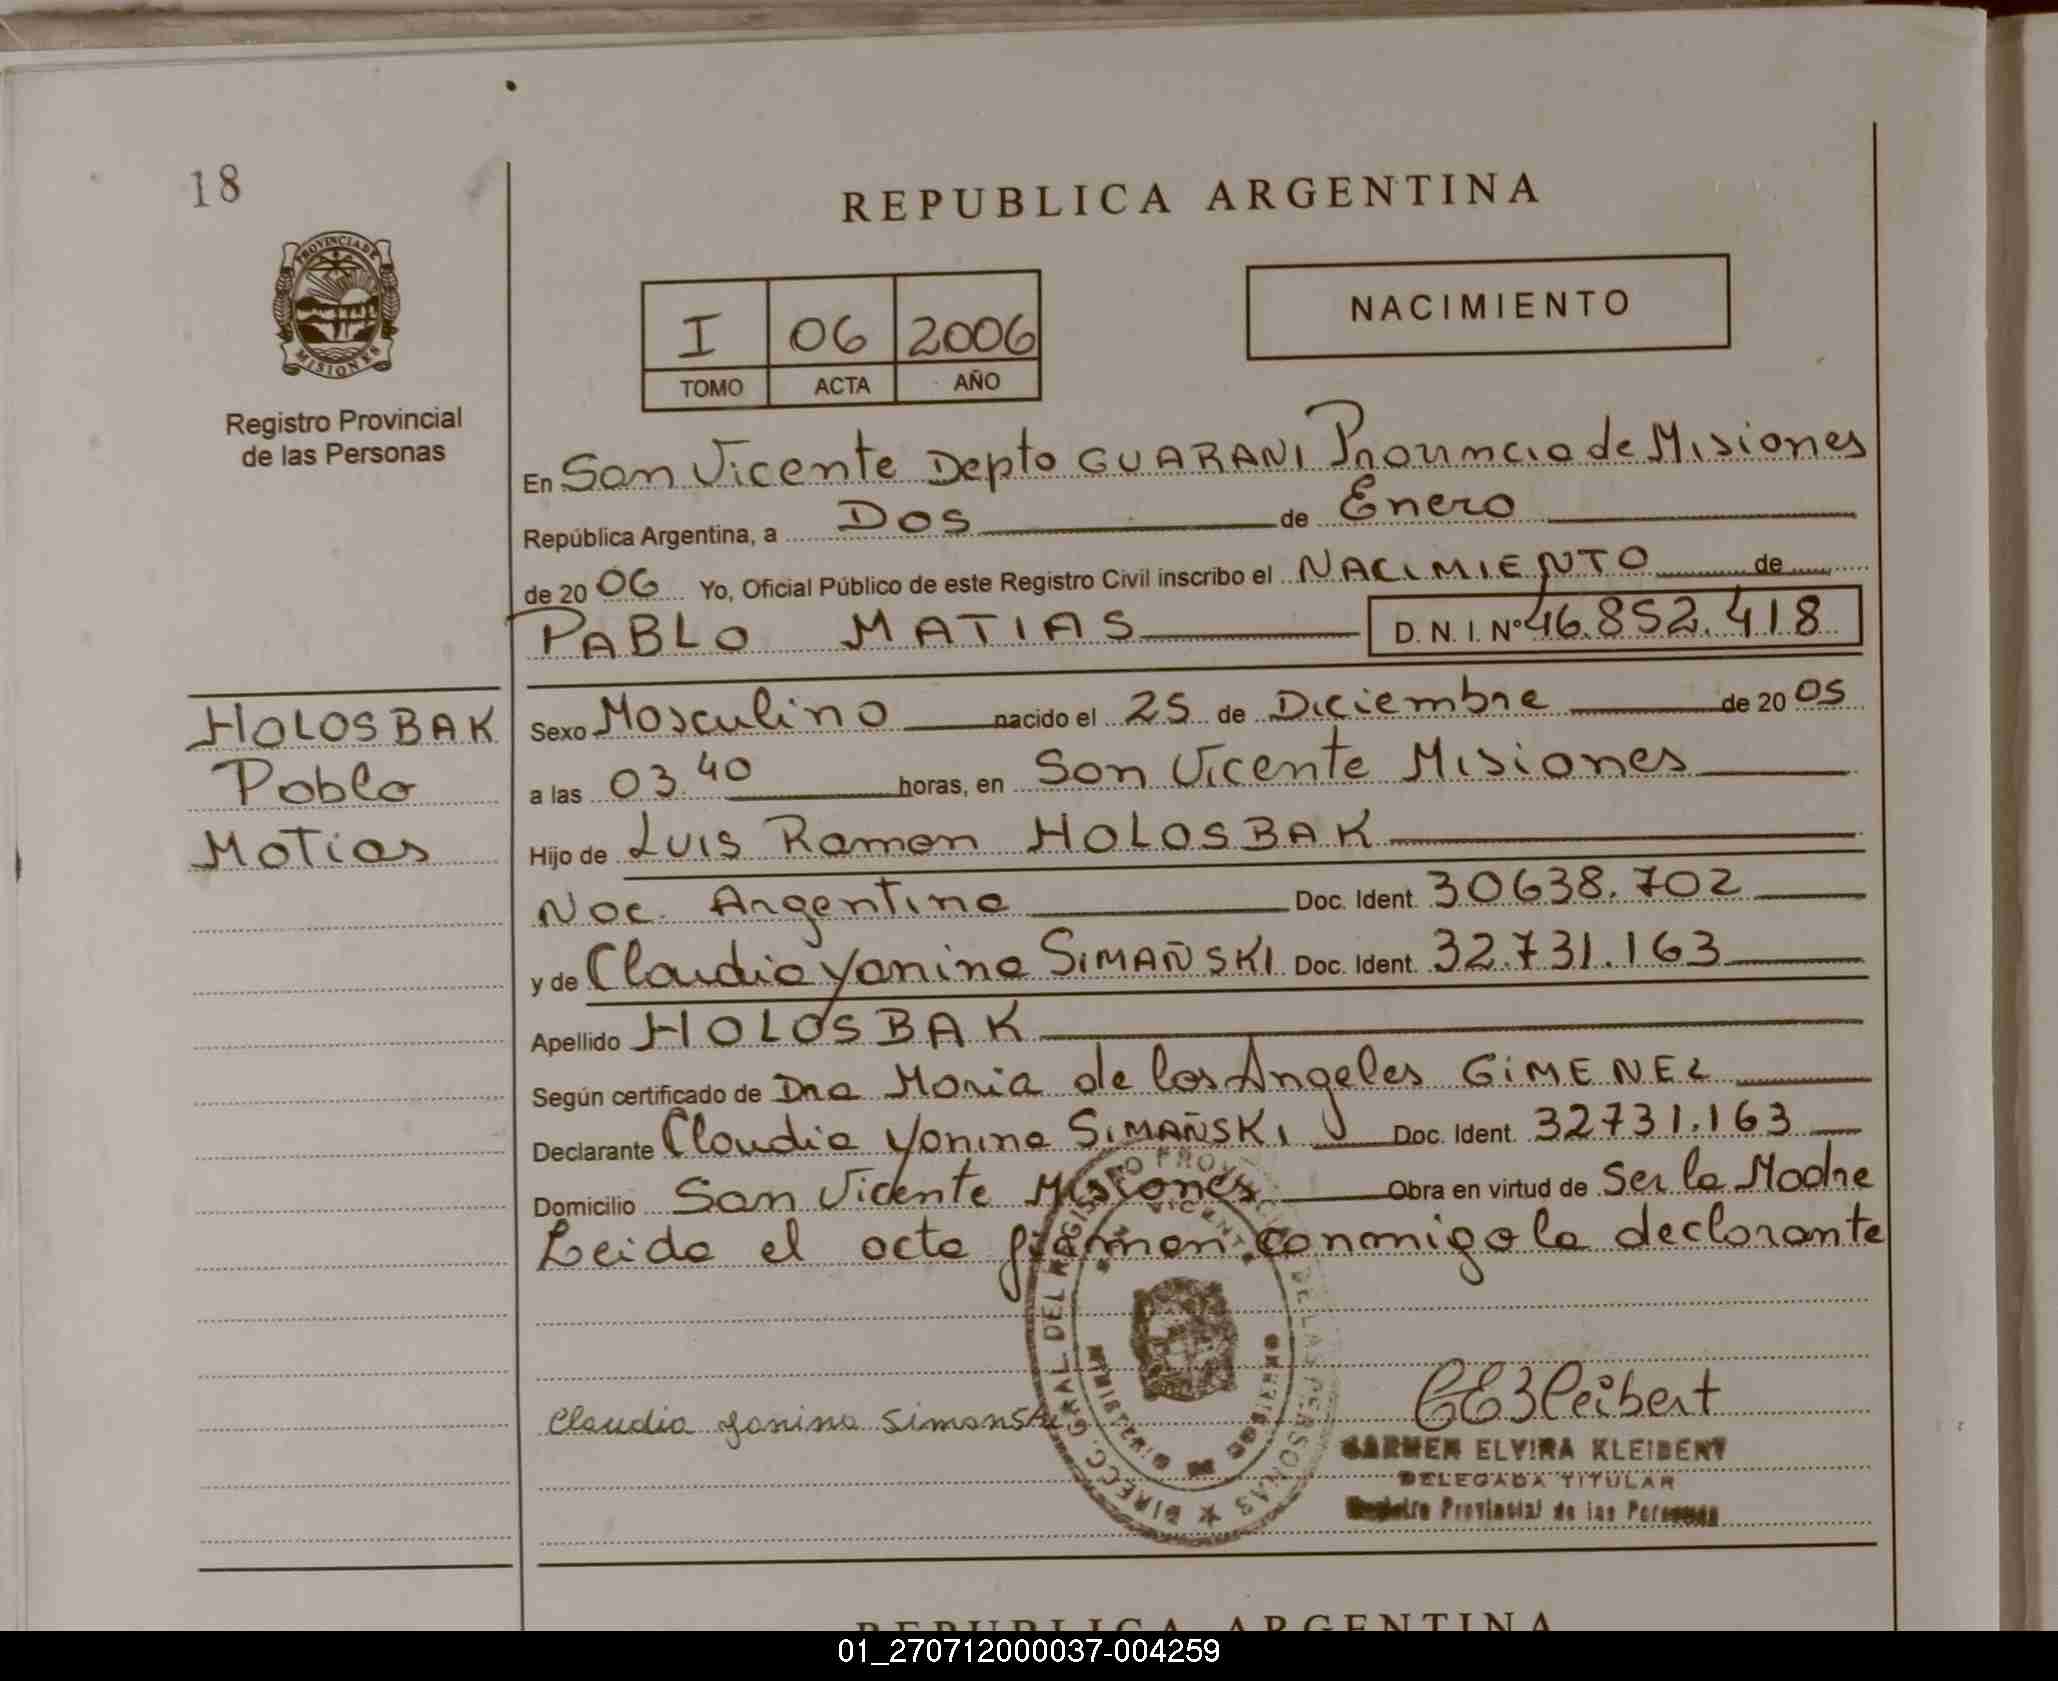 18
REPUBLICA ARGENTINA
PROVINCIA DE
MISIONES
Registro Provincial
de las Personas
I 06 2006
TOMO ACTA AÑO
NACIMIENTO
En San Vicente Depto GUARANI Provincia de Misiones
República Argentina, a Dos de Enero
de 20 06 Yo, Oficial Público de este Registro Civil inscribo el NACIMIENTO de
PABLO MATIAS D. N. I. Nº 46.852.418
HOLOSBAK
Pablo
Matias
Sexo Masculino nacido el 25 de Diciembre de 20 05
a las 03.40 horas, en San Vicente Misiones
Hijo de Luis Ramon HOLOSBAK
Nac. Argentina Doc. Ident. 30638.702
y de Claudia Yanina SIMAÑSKI Doc. Ident. 32.731.163
Apellido HOLOSBAK
Según certificado de Dra Maria de los Angeles GIMENEZ
Declarante Claudia Yanina SIMAÑSKI Doc. Ident. 32731.163
Domicilio San Vicente Misiones Obra en virtud de Ser la Madre
Leida el acta firman conmigo la declarante
DIRECC. GRAL. DEL REGISTRO PROVINCIAL DE LAS PERSONAS
Claudia Yanina Simanski
CEKleibert
CARMEN ELVIRA KLEIBERT
DELEGADA TITULAR
Registro Provincial de las Personas
REPUBLICA ARGENTINA
01_270712000037-004259